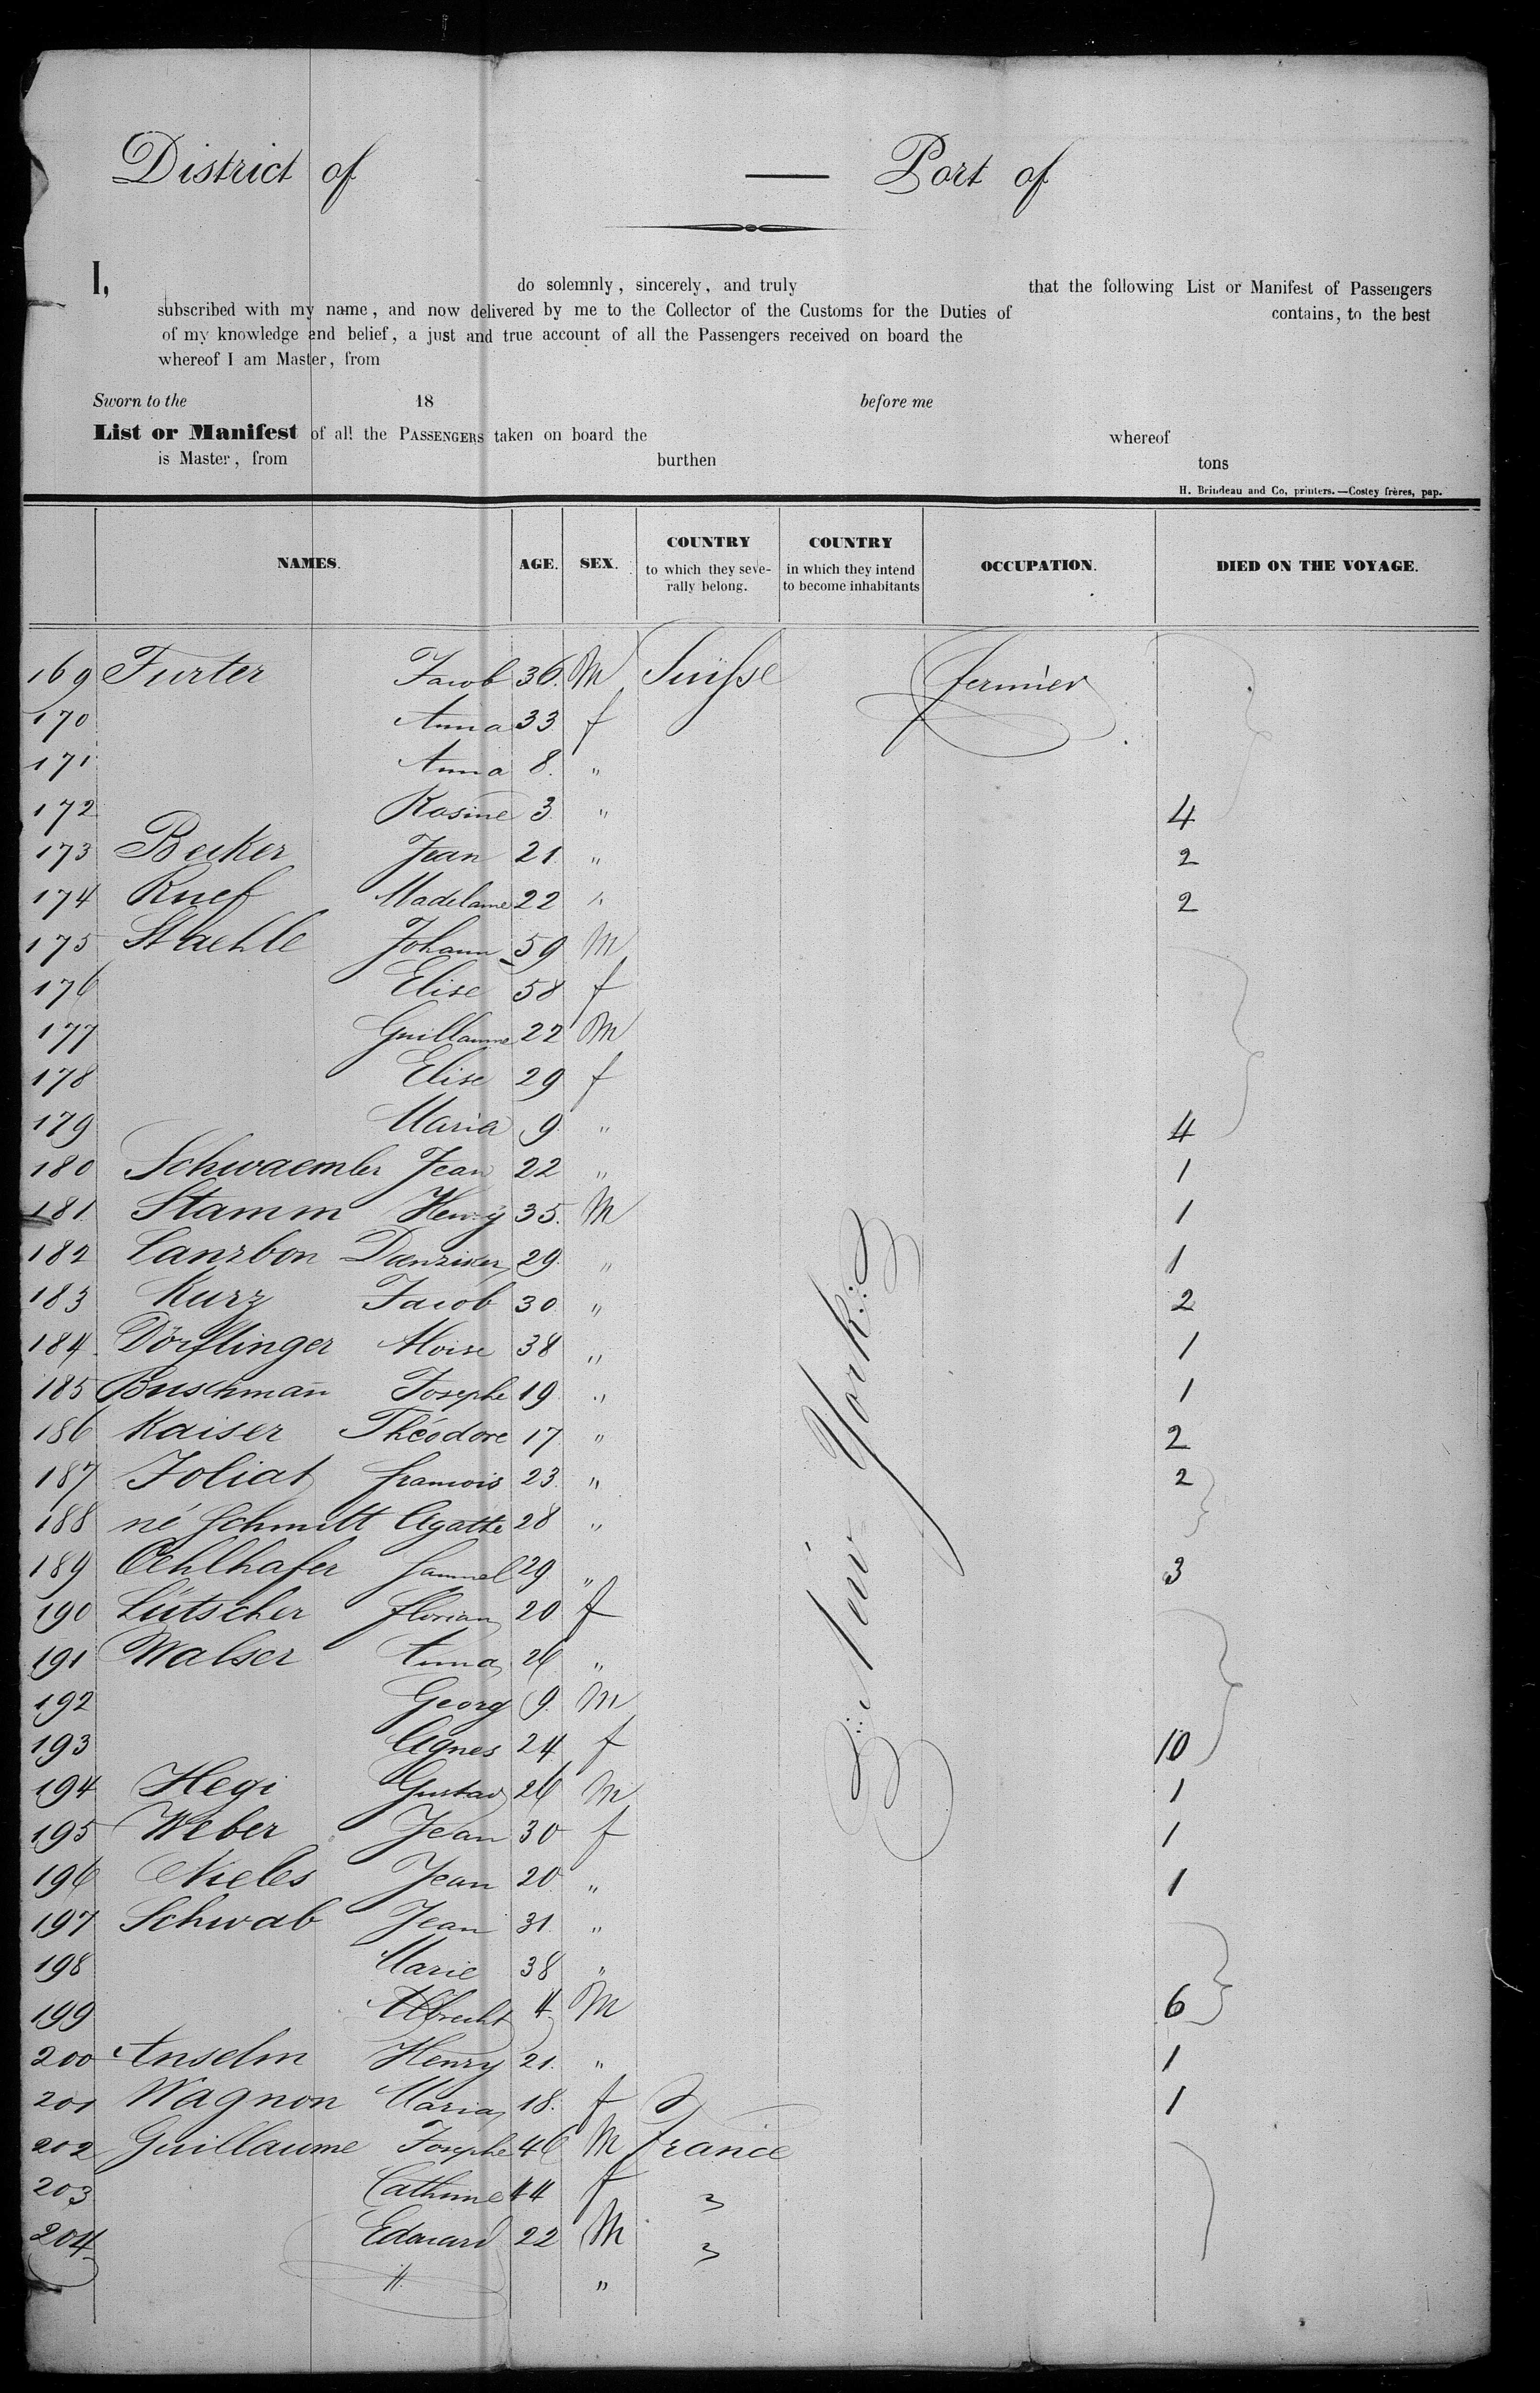 District of — Port of
I, do solemnly, sincerely, and truly that the following List or Manifest of Passengers
subscribed with my name, and now delivered by me to the Collector of the Customs for the Duties of contains, to the best
of my knowledge and belief, a just and true account of all the Passengers received on board the
whereof I am Master, from
Sworn to the 18 before me
List or Manifest of all the PASSENGERS taken on board the whereof
is Master, from burthen tons
H. Brindeau and Co, printers.—Costey frères, pap.
NAMES. AGE. SEX. COUNTRY to which they seve-rally belong. COUNTRY in which they intend to become inhabitants OCCUPATION. DIED ON THE VOYAGE.
169 Furter Jacob 36. M Suisse fermier
170 Anna 33 f
171 Anna 8. "
172 Rosine 3 " 4
173 Becker Jean 21 " 2
174 Ruef Madelaine 22 " 2
175 Staehle Johann 59 M
176 Elise 58 f
177 Guillaume 22 M
178 Elise 29 f
179 Maria 9 " 4
180 Schwaemler Jean 22 " 1
181 Stamm Henry 35. M 1
182 Lanzbon Danziker 29 " 1
183 Kurz Jacob 30 " 2
184 Dörflinger Moise 38 " 1
185 Buschmañ Josephe 19 " 1
186 Kaiser Théodore 17 " 2
187 Joliat francois 23 " 2
188 né Schmitt Agatte 28 "
189 Oehlhafer Samuel 29 " 3
190 Lütscher florian 20 f
191 Walser Anna 26 "
192 Georg 9 M
193 Agnes 24 f 10
194 Hegi Gustav 26 M 1
195 Weber Jean 30 f 1
196 Nieles Jean 20 " 1
197 Schwab Jean 31 "
198 Marie 38 "
199 Albrecht 4 M 6
200 Anselm Henry 21. " 1
201 Wagnon Maria 18. f 1
202 Guillaume Josephe 46 M France
203 Cathrine 44 f "
204 Edouard 22 M "
" "
New York